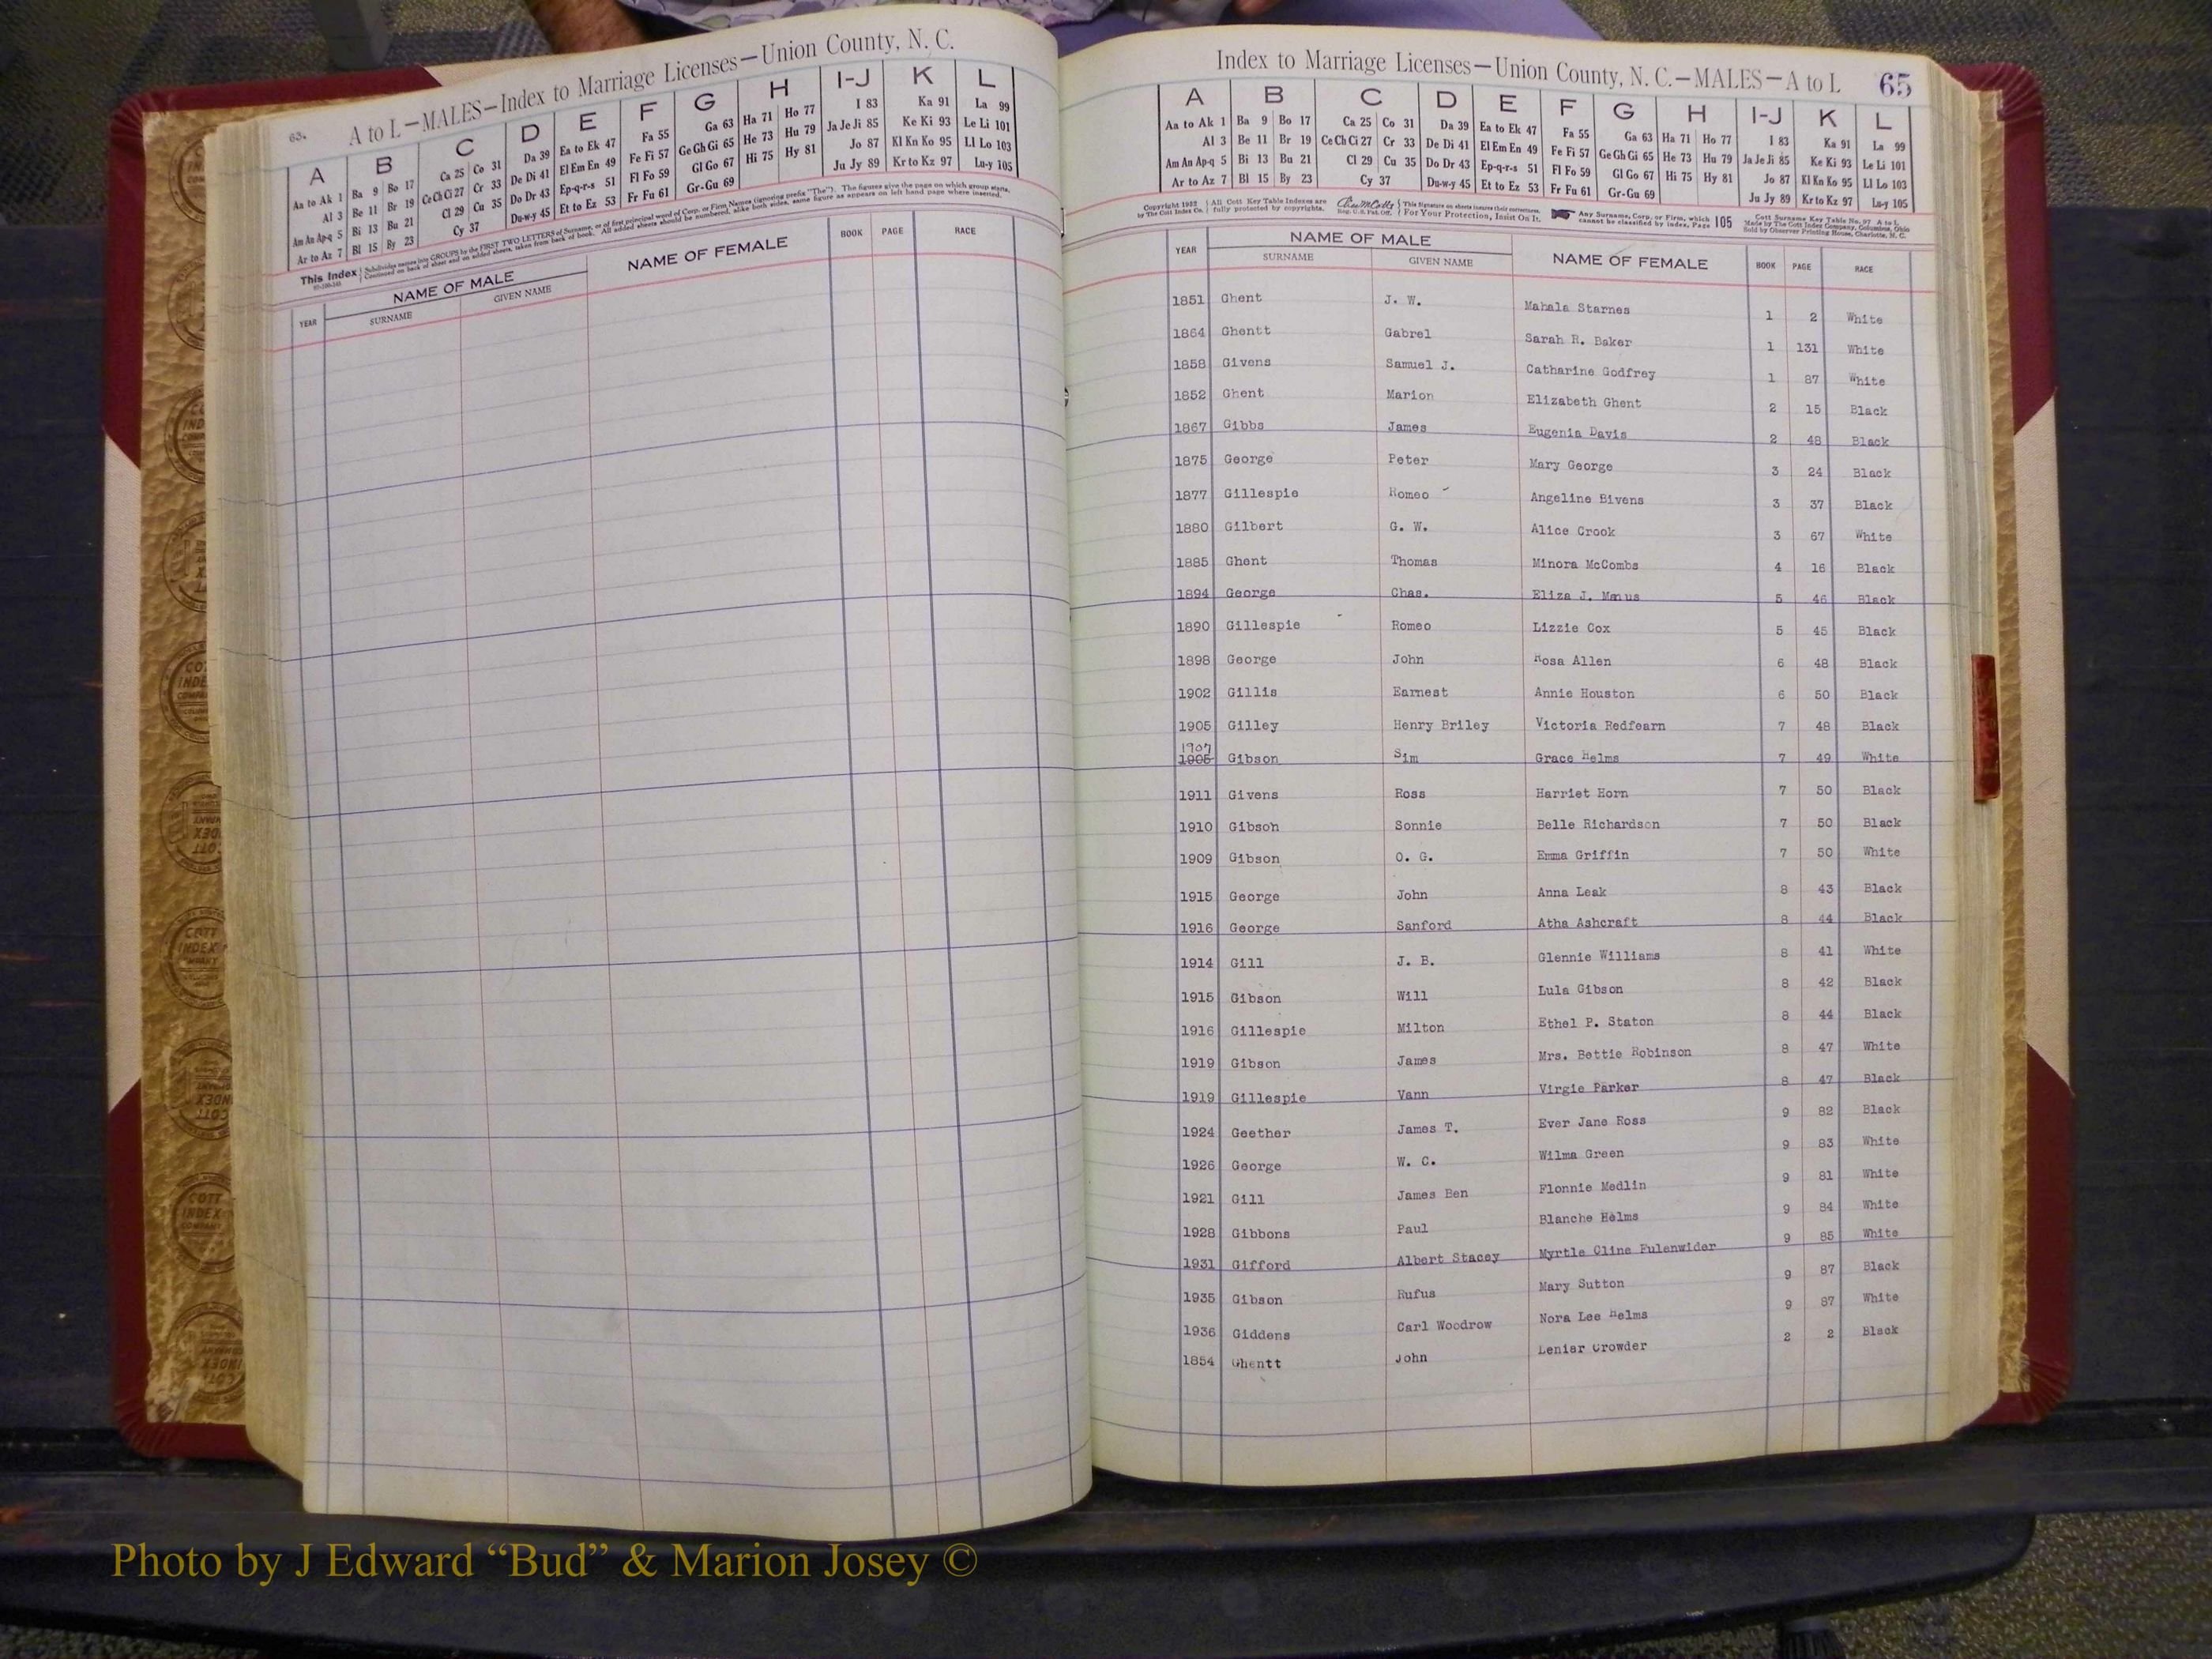 63.
A to L—MALES—Index to Marriage Licenses—Union County, N. C.
A B C D E F G H I-J K L
Aa to Ak 1 Ba 9 Bo 17 Ca 25 Co 31 Da 39 Ea to Ek 47 Fa 55 Ga 63 Ha 71 Ho 77 I 83 Ka 91 La 99
Al 3 Be 11 Br 19 Ce Ch Ci 27 Cr 33 De Di 41 El Em En 49 Fe Fi 57 Ge Gh Gi 65 He 73 Hu 79 Ja Je Ji 85 Ke Ki 93 Le Li 101
Am An Ap-q 5 Bi 13 Bu 21 Cl 29 Cu 35 Do Dr 43 Ep-q-r-s 51 Fl Fo 59 Gl Go 67 Hi 75 Hy 81 Jo 87 Kl Kn Ko 95 Ll Lo 103
Ar to Az 7 Bl 15 By 23 Cy 37 Du-w-y 45 Et to Ez 53 Fr Fu 61 Gr-Gu 69 Ju Jy 89 Kr to Kz 97 Lu-y 105
This Index Subdivides names into GROUPS by the FIRST TWO LETTERS of Surname, or of first principal word of Corp. or Firm Names (ignoring prefix "The"). The figures give the page on which group starts.
Continued on back of sheet and on added sheets, taken from back of book. All added sheets should be numbered, alike both sides, same figure as appears on left hand page where inserted.
YEAR NAME OF MALE NAME OF FEMALE BOOK PAGE RACE
SURNAME GIVEN NAME
Index to Marriage Licenses—Union County, N. C.—MALES—A to L 65
A B C D E F G H I-J K L
Aa to Ak 1 Ba 9 Bo 17 Ca 25 Co 31 Da 39 Ea to Ek 47 Fa 55 Ga 63 Ha 71 Ho 77 I 83 Ka 91 La 99
Al 3 Be 11 Br 19 Ce Ch Ci 27 Cr 33 De Di 41 El Em En 49 Fe Fi 57 Ge Gh Gi 65 He 73 Hu 79 Ja Je Ji 85 Ke Ki 93 Le Li 101
Am An Ap-q 5 Bi 13 Bu 21 Cl 29 Cu 35 Do Dr 43 Ep-q-r-s 51 Fl Fo 59 Gl Go 67 Hi 75 Hy 81 Jo 87 Kl Kn Ko 95 Ll Lo 103
Ar to Az 7 Bl 15 By 23 Cy 37 Du-w-y 45 Et to Ez 53 Fr Fu 61 Gr-Gu 69 Ju Jy 89 Kr to Kz 97 Lu-y 105
Copyright 1932 All Cott Key Table Indexes are This Signature on sheets insures their correctness. Any Surname, Corp. or Firm, which 105 Cott Surname Key Table No. 97 A to L
by The Cott Index Co. fully protected by copyrights. Reg. U.S. Pat. Off. For Your Protection, Insist On It. cannot be classified by index, Page Made by The Cott Index Company, Columbus, Ohio
Sold by Observer Printing House, Charlotte, N. C.
YEAR NAME OF MALE NAME OF FEMALE BOOK PAGE RACE
SURNAME GIVEN NAME
1851 Ghent J. W. Mahala Starnes 1 2 White
1864 Ghentt Gabrel Sarah R. Baker 1 131 White
1858 Givens Samuel J. Catharine Godfrey 1 87 White
1852 Ghent Marion Elizabeth Ghent 2 15 Black
1867 Gibbs James Eugenia Davis 2 48 Black
1875 George Peter Mary George 3 24 Black
1877 Gillespie Romeo Angeline Bivens 3 37 Black
1880 Gilbert G. W. Alice Crook 3 67 White
1885 Ghent Thomas Minora McCombs 4 16 Black
1894 George Chas. Eliza J. 5 46 Black
1890 Gillespie Romeo Lizzie Cox 5 45 Black
1898 George John Rosa Allen 6 48 Black
1902 Gillis Earnest Annie Houston 6 50 Black
1905 Gilley Henry Briley Victoria Redfearn 7 48 Black
1907
1905 Gibson Sim Grace Helms 7 49 White
1911 Givens Ross Harriet Horn 7 50 Black
1910 Gibson Sonnie Belle Richardson 7 50 Black
1909 Gibson O. G. Emma Griffin 7 50 White
1915 George John Anna Leak 8 43 Black
1916 George Sanford Atha Ashcraft 8 44 Black
1914 Gill J. B. Glennie Williams 8 41 White
1915 Gibson Will Lula Gibson 8 42 Black
1916 Gillespie Milton Ethel P. Staton 8 44 Black
1919 Gibson James Mrs. Bettie Robinson 8 47 White
1919 Gillespie Vann Virgie Parker 8 47 Black
1924 Geether James T. Ever Jane Ross 9 82 Black
1926 George W. C. Wilma Green 9 83 White
1921 Gill James Ben Flonnie Medlin 9 81 White
1928 Gibbons Paul Blanche Helms 9 84 White
1931 Gifford Albert Stacey Myrtle Cline Fulenwider 9 85 White
1935 Gibson Rufus Mary Sutton 9 87 Black
1936 Giddens Carl Woodrow Nora Lee Helms 9 87 White
1854 Ghentt John Leniar Crowder 2 2 Black
Photo by J Edward “Bud” & Marion Josey ©